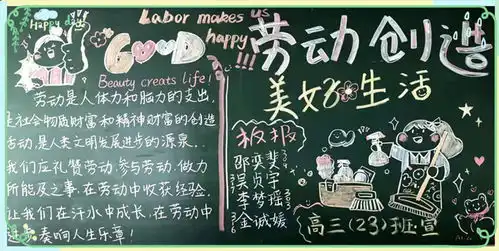 Happy day
Labor makes us
happy!!!
GOOD
Beauty creats life!
劳动是人体力和脑力的支出,
是社会物质财富和精神财富的创造
活动,是人类文明发展进步的源泉...
我们应礼赞劳动,参与劳动,做力
所能及之事,在劳动中收获经验,
让我们在汗水中成长,在劳动中
奏响人生乐章!
劳动创造
美好生活
板报
邵奕斐
吴贞宇
李梦瑶
金诚媛
高三(23)班宣